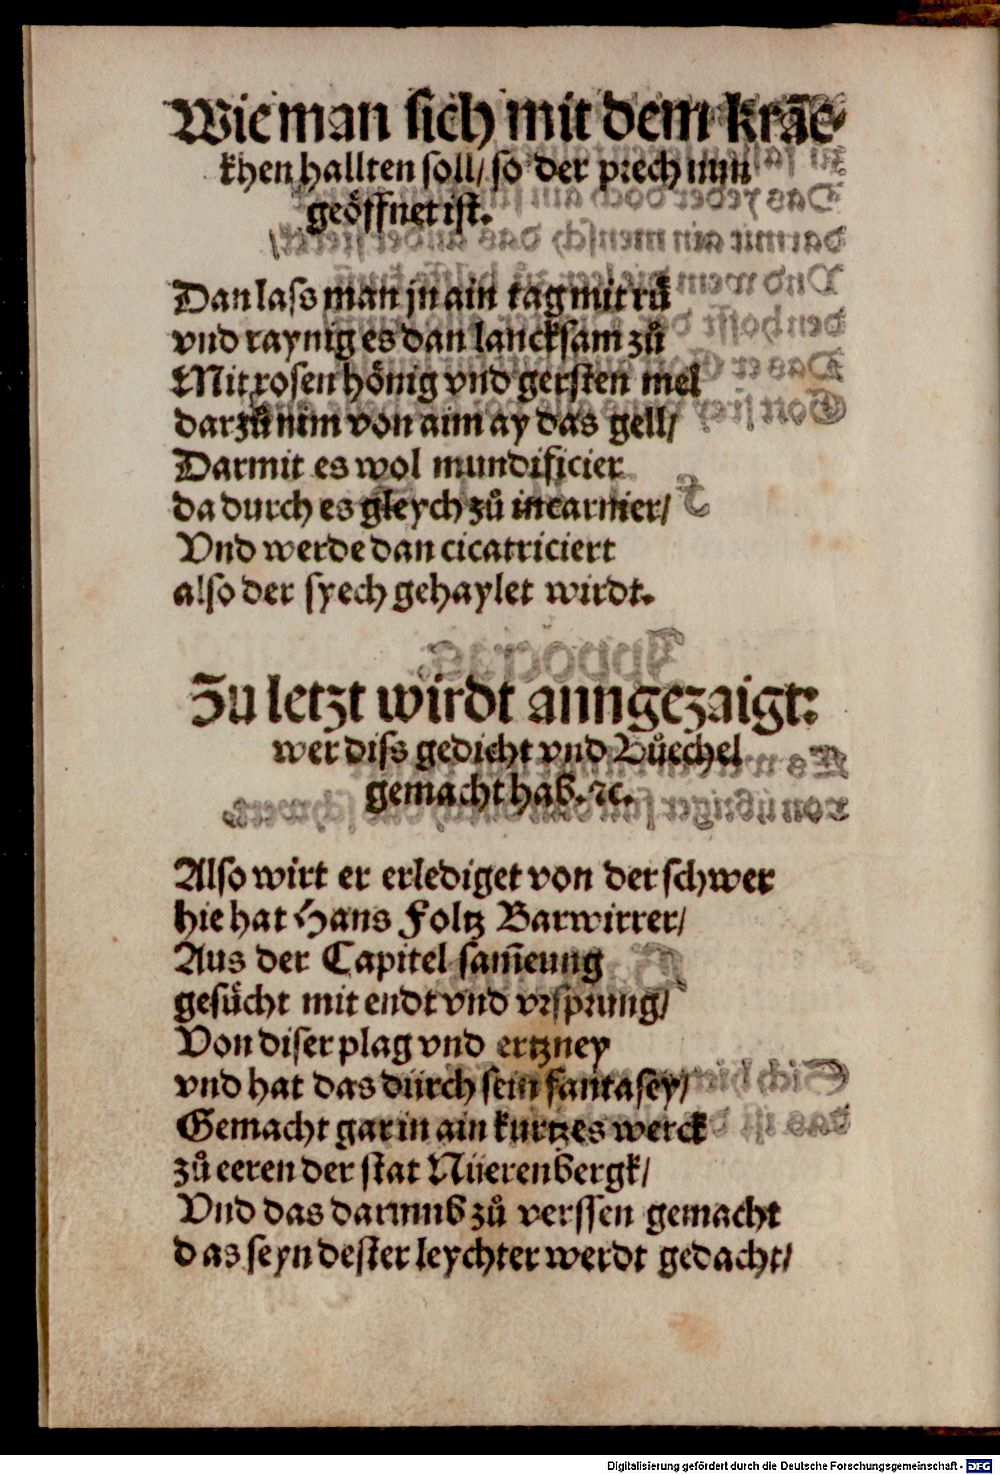 Wie man sich mit dem krāc⸗
khen hallten soll/ so der prech nun
geöffnet ist.
Dan lass man jn ain tag mit rů
vnd raynig es dan lancksam zů
Mit rosen hönig vnd gersten mel
darzů nim von aim ay das gell/
Darmit es wol mundificier
da durch es gleych zů incarnier/
Vnd werde dan cicatriciert
also der syech gehaylet wirdt.
Zu letzt wirdt anngezaigt:
wer diss gedicht vnd Bůechel
gemacht hab. ꝛc.
Also wirt er erlediget von der schwer
hie hat Hans Foltz Barwirrer/
Aus der Capitel sam̄eung
gesůcht mit endt vnd vrsprung/
Von diser plag vnd ertzney
vnd hat das durch sein fantasey/
Gemacht gar in ain kurtzes werck
zů eeren der stat Nüerenbergk/
Vnd das darumb zů verssen gemacht
das seyn dester leychter werdt gedacht/
Digitalisierung gefördert durch die Deutsche Forschungsgemeinschaft - DFG